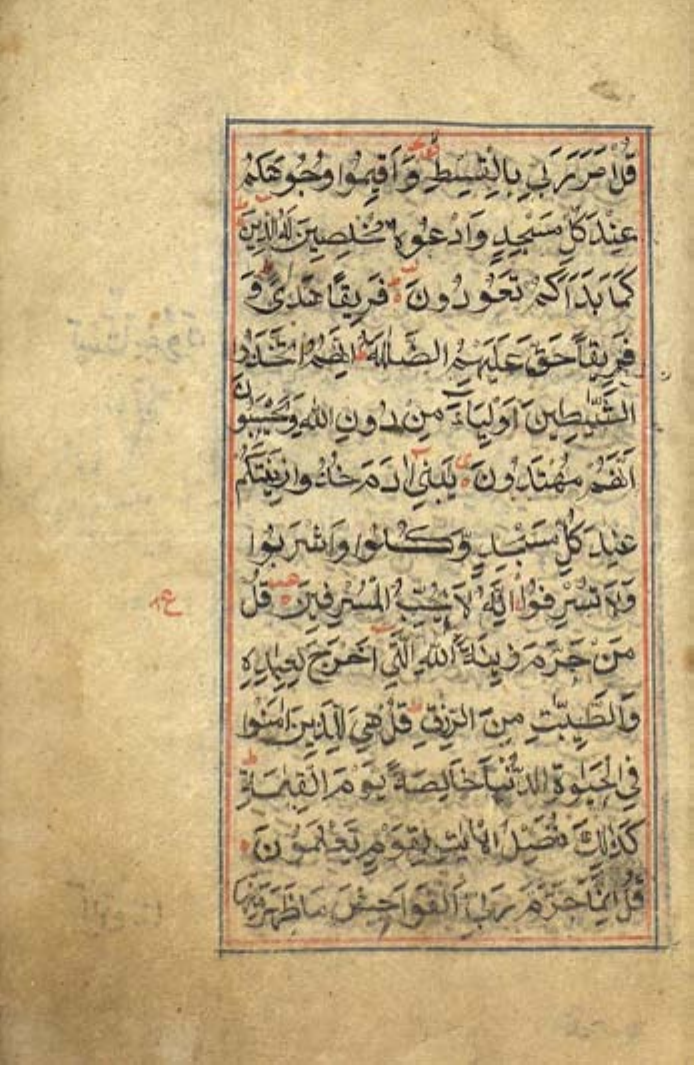 قُلْ اَمَرَ رَبِّي بِالْقِسْطِ وَاَقِيمُوا وُجُوهَكُمْ
عِنْدَ كُلِّ مَسْجِدٍ وَادْعُوهُ مُخْلِصِينَ لَهُ الدِّينَ
كَمَا بَدَاَكُمْ تَعُودُونَ فَرِيقًا هَدٰى وَ
فَرِيقًا حَقَّ عَلَيْهِمُ الضَّلٰلَةُ اِنَّهُمُ اتَّخَذُوا
الشَّيٰطِينَ اَوْلِيَاءَ مِنْ دُونِ اللّٰهِ وَيَحْسَبُونَ
اَنَّهُمْ مُهْتَدُونَ يٰبَنِي اٰدَمَ خُذُوا زِينَتَكُمْ
عِنْدَ كُلِّ مَسْجِدٍ وَّكُلُوا وَاشْرَبُوا
وَلَا تُسْرِفُوا اِنَّهُ لَا يُحِبُّ الْمُسْرِفِينَ قُلْ
مَنْ حَرَّمَ زِينَةَ اللّٰهِ الَّتِي اَخْرَجَ لِعِبَادِهِ
وَالطَّيِّبٰتِ مِنَ الرِّزْقِ قُلْ هِيَ لِلَّذِينَ اٰمَنُوا
فِي الْحَيٰوةِ الدُّنْيَا خَالِصَةً يَوْمَ الْقِيٰمَةِ
كَذٰلِكَ نُفَصِّلُ الْاٰيٰتِ لِقَوْمٍ يَعْلَمُونَ
قُلْ اِنَّمَا حَرَّمَ رَبِّيَ الْفَوَاحِشَ مَا ظَهَرَ مِنْهَا